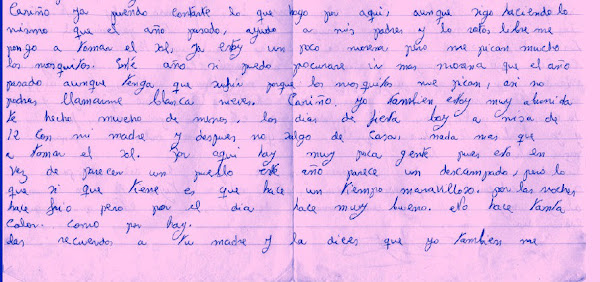 Cariño ya puendo contarte lo que hago por aqui, aunque sigo haciendo lo
mismo que el año pasado, ayudo a mis padres y lo ratos libre me
pongo a tomar el sol, ya estoy un poco morena, pero me pican mucho
los mosquitos. Este año si puedo procurare ir mas morena que el año
pasado aunque tenga que sufrir porque los mosquitos me pican, asi no
podras llamarme blanca nieves. Cariño yo tambien estoy muy aburrida
te hecho mucho de menos, los dias de fiesta boy a misa de
12 con mi madre y despues no salgo de casa, nada mas que
a tomar el sol. Por aqui hay muy poca gente pues esto en
vez de parecer un pueblo este año parece un descampado, pero lo
que si que tiene es que hace un tiempo maravilloso. por las noches
hace frio pero por el dia hace muy bueno. No hace tanta
calor. como por hay.
das recuerdos a tu madre y la dices que yo tambien me